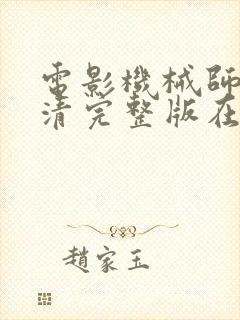 電影機械師
清完整版在
趙家玉